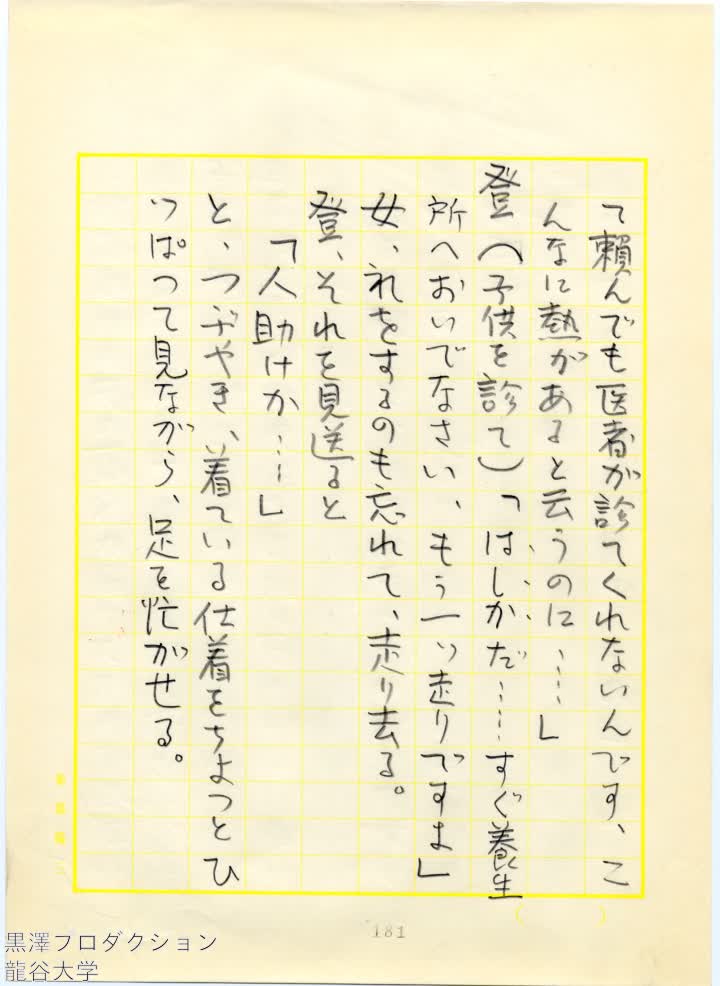 て頼んでも医者が診てくれないんです、こ
んなに熱があると云うのに……」
登（子供を診て）「はしかだ……すぐ養生
所へおいでなさい、もう一ッ走りですよ」
女、礼をするのも忘れて、走り去る。
登、それを見送ると
「人助けか……」
と、つぶやき、着ている仕着をちょっとひ
っぱって見ながら、足を忙がせる。
181
黒澤プロダクション
龍谷大学